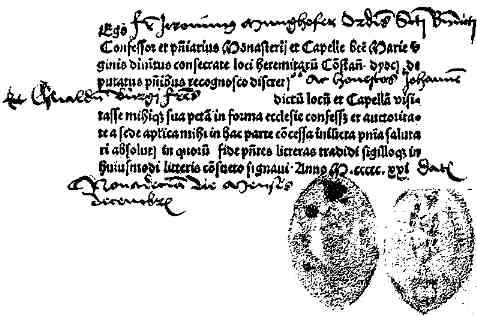 Ego fr Jeronimus Munghofer Ordinis Sti Bndicti
Confessor et pn̄iarius Monasterij et Capelle btē Marie v
ginis diuinitus consecrate loci heremitarū Cōstan̄. dyoc̄. de
putatus pn̄ibus recognosco discretos Ac honestos Johannē
et Oswaldū fres dictū locū et Capellā visi
tasse mihiqȝ sua pctā in forma ecclesie confessos et auctorita⸗
te a sede apl̄ica mihi in hac parte cōcessa iniūcta pn̄ia saluta
ri absoluti in quorū fide pn̄tes litteras tradidi sigilloqȝ in
huiusmodi litteris cōsueto signaui. Anno M.ccccc.xxi Datū
die Mensis
decembris